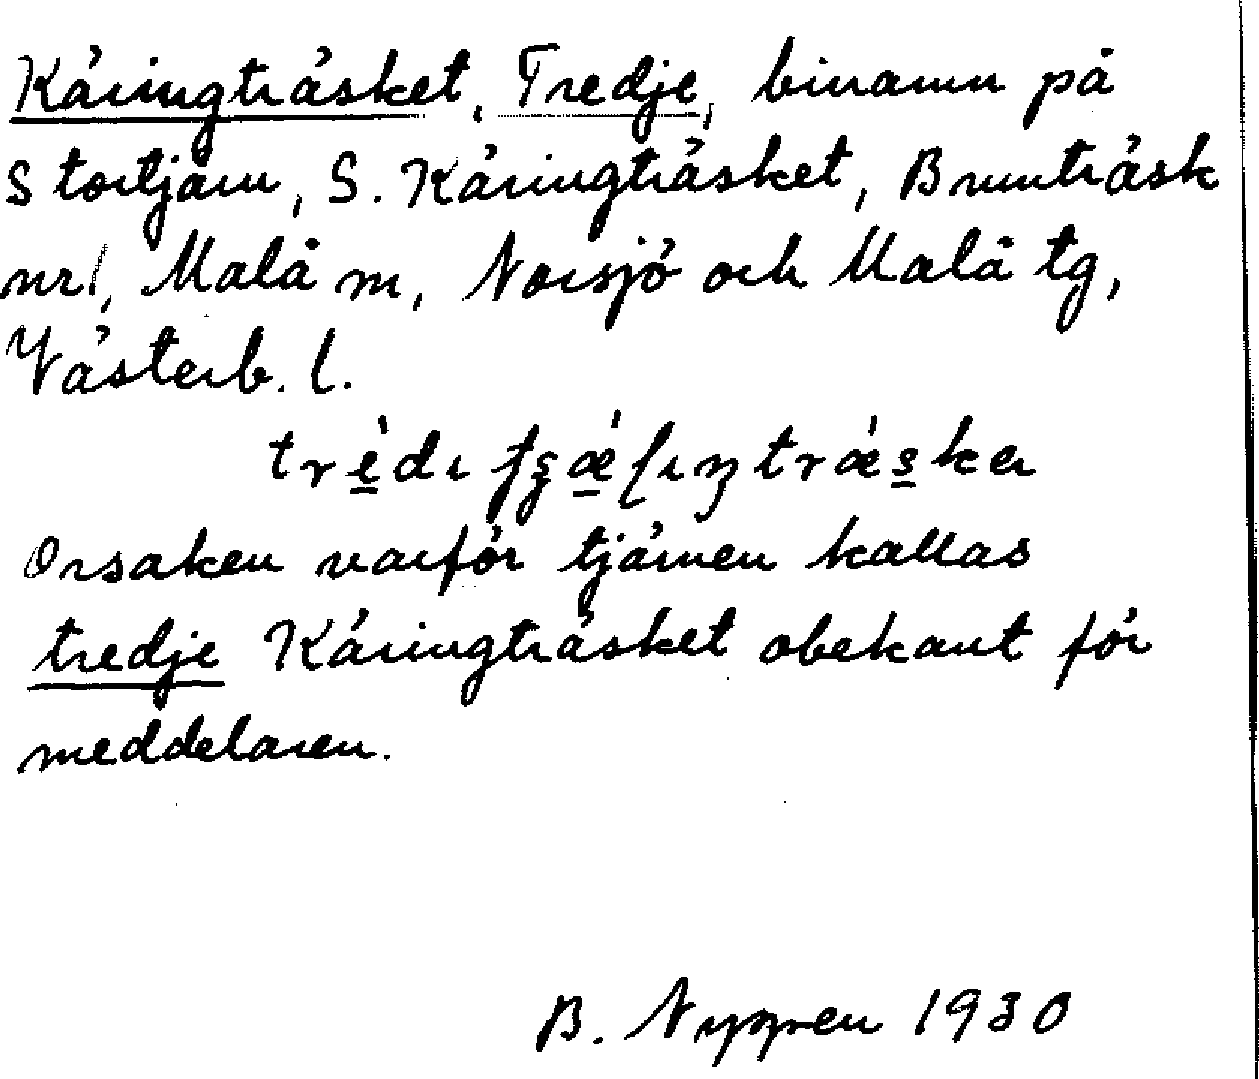 Käringträsket, Tredje, binamn på
Stortjärn, S. Käringträsket, Brunträsk
nr 1, Malå m, Norsjö och Malå tg,
Västerb. l.
Orsaken varför tjärnen kallas
tredje Käringträsket obekant för
meddelaren.
B. Nygren 1930